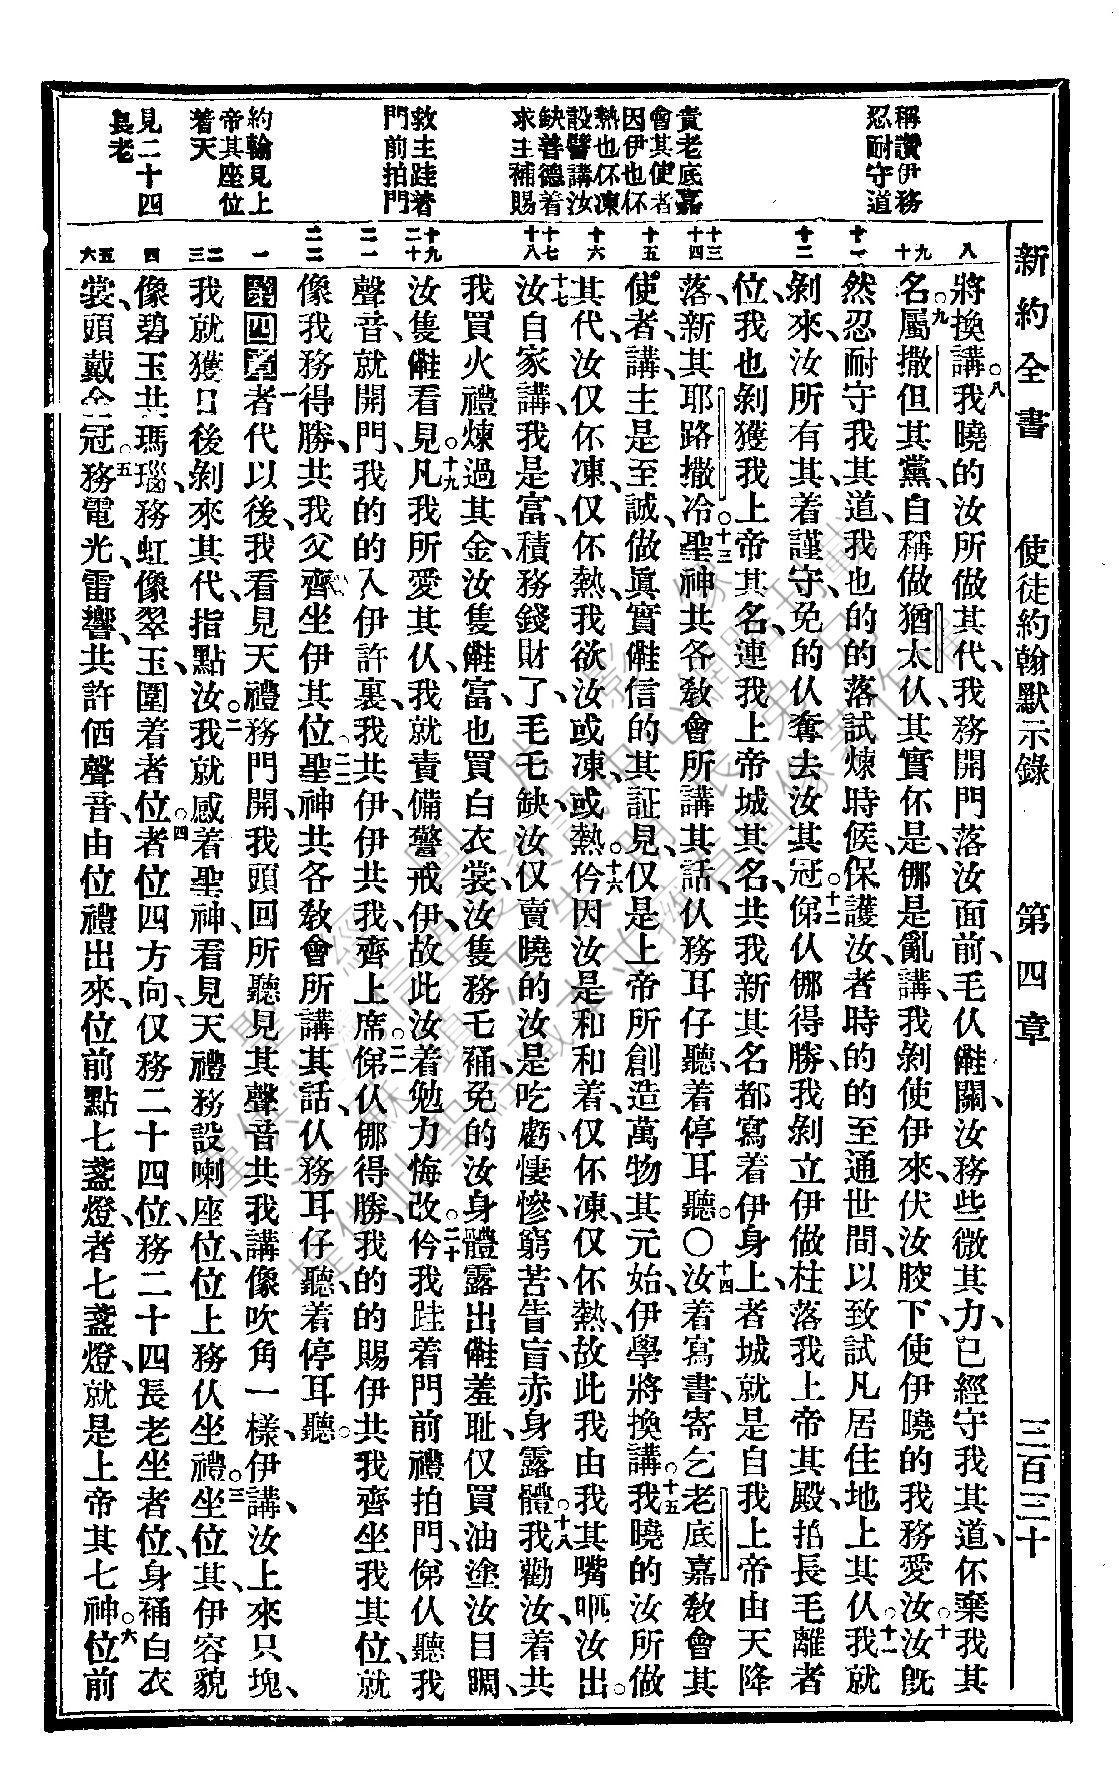 新約全書 使徒約翰默示錄 第四章 三百三十
稱讚伊務
忍耐守道
責老底嘉
會其使者
因伊也伓
熱也伓凍
設譬講汝
缺善德着
求主補賜
救主跬着
門前拍門
約翰見上
帝其座位
着天
見二十四
長老
八
九
十
十一
十二
十三
十四
十五
十六
十七
十八
十九
二十
二一
二二
一
二
三
四
五
六
將換講。八我曉的汝所做其代、我務開門落汝面前、毛仈𣍐關、汝務些微其力、已經守我其道、伓棄我其
名。九屬撒但其黨、自稱做猶太仈、其實伓是、㑚是亂講、我剝使伊來、伏汝骹下、使伊曉的我務愛汝。十汝旣
然忍耐守我其道、我也的的落試煉時候、保護汝、者時的的至通世間、以致試凡居住地上其仈。十一我就
剝來、汝所有其、着謹守、免的仈奪去汝其冠。十二俤仈㑚得勝、我剝立伊做柱落我上帝其殿、𢫫長毛離者
位、我也剝獲我上帝其名、連我上帝城其名、共我新其名、都寫着伊身上、者城就是自我上帝由天降
落、新其耶路撒冷。十三聖神共各教會所講其話、仈務耳仔聽、着停耳聽。〇十四汝着寫書寄乞老底嘉教會其
使者、講、主是至誠、做眞實𣍐信的其証見、仅是上帝所創造萬物其元始、伊學將換講。十五我曉的汝所做
其代、汝仅伓凍、仅伓熱、我欲汝或凍、或熱。十六仱因汝是和和着、仅伓凍、仅伓熱、故此我由我其嘴𠯗汝出。
十七汝自家講、我是富、積務錢財了、毛乇缺、汝仅賣曉的汝是吃虧、悽慘、窮苦、眚盲、赤身露體。十八我勸汝、着共
我買火禮煉過其金、汝隻𣍐富、也買白衣裳、汝隻務乇䘼、免的汝身體露出𣍐羞耻、仅買油塗汝目睭、
汝隻𣍐看見。十九凡我所愛其仈、我就責備警戒伊、故此汝着勉力悔改。二十仱我跬着門前禮拍門、俤仈聽我
聲音、就開門、我的的入伊許裏、我共伊、伊共我、齊上席。二一俤仈㑚得勝、我的的賜伊共我齊坐我其位、就
像我務得勝、共我父齊坐伊其位。二二聖神共各教會所講其話、仈務耳仔聽、着停耳聽。
第四章 一者代以後、我看見天禮務門開、我頭回所聽見其聲音、共我講、像吹角一樣、伊講、汝上來只塊、
我就獲日後剝來其代、指點汝。二我就感着聖神、看見天禮務設喇座位、位上務仈坐禮。三坐位其、伊容貌
像碧玉共瑪瑙、務虹像翠玉、圍着者位。四者位四方向、仅務二十四位、務二十四長老坐者位、身䘼白衣
裳、頭戴金冠。五務電光、雷響、共許価聲音由位禮出來、位前點七盞燈、者七盞燈、就是上帝其七神。六位前